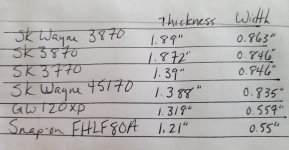 Thickness Width
SK Wayne 3870 1.89" 0.863"
SK 3870 1.872" 0.846"
SK 3770 1.39" 0.846"
SK Wayne 45170 1.388" 0.835"
GW 120xp 1.319" 0.559"
Snap-on FHLF80A 1.21" 0.55"